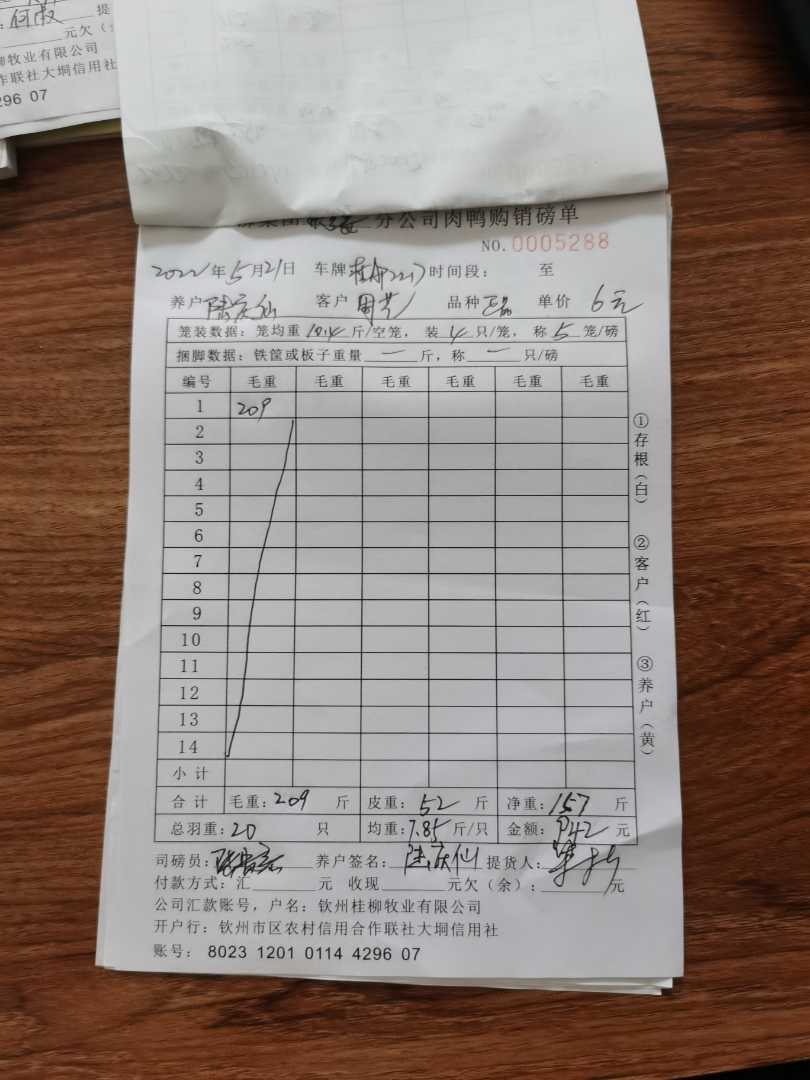 元欠（
柳牧业有限公司
作联社大垌信用社
296 07
分公司肉鸭购销磅单
NO.0005288
2022年5月21日 车牌 时间段： 至
养户 陆庆仙 客户 品种 正品 单价 6元
笼装数据：笼均重 10.4 斤/空笼，装 4 只/笼，称 5 笼/磅
捆脚数据：铁筐或板子重量 — 斤，称 — 只/磅
编号 毛重 毛重 毛重 毛重 毛重 毛重
1 209
2
3
4
5
6
7
8
9
10
11
12
13
14
小计
合计 毛重：209 斤 皮重：52 斤 净重：157 斤
总羽重：20 只 均重：7.85 斤/只 金额：942 元
司磅员： 养户签名：陆庆仙 提货人：
付款方式：汇 元 收现 元欠（余）： 元
公司汇款账号，户名：钦州桂柳牧业有限公司
开户行：钦州市区农村信用合作联社大垌信用社
账号：8023 1201 0114 4296 07
①存根（白）
②客户（红）
③养户（黄）